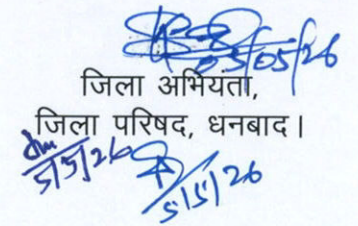 05/05/26
जिला अभियंता,
जिला परिषद, धनबाद।
5/5/26
5/5/26